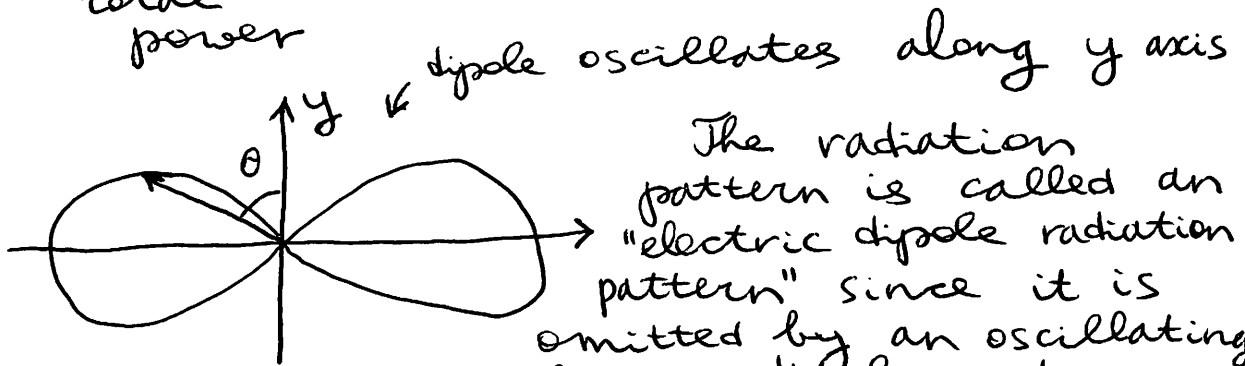 power
dipole oscillates along y axis
y
θ
The radiation
pattern is called an
"electric dipole radiation
pattern" since it is
omitted by an oscillating